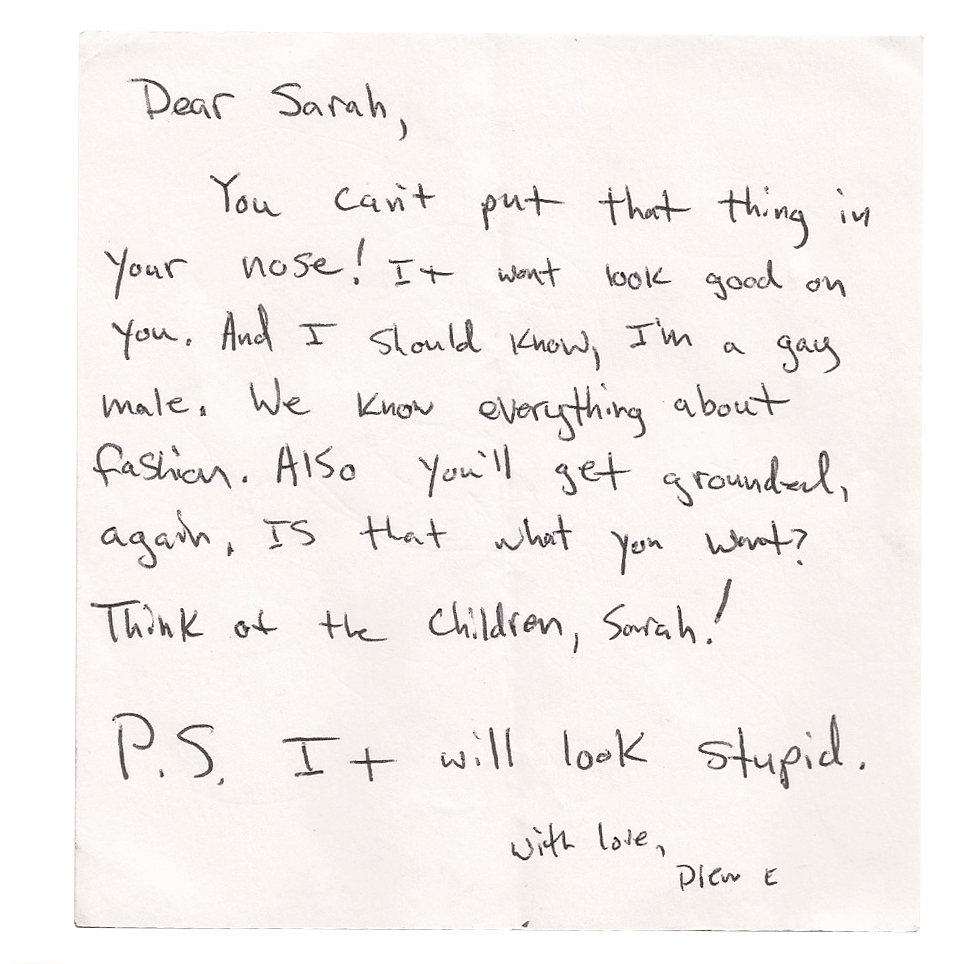 Dear Sarah,
You can't put that thing in
your nose! It wont look good on
you. And I should know, I'm a gay
male. We know everything about
fashion. Also you'll get grounded,
again. Is that what you want?
Think of the children, Sarah!
P.S. It will look stupid.
with love,
E